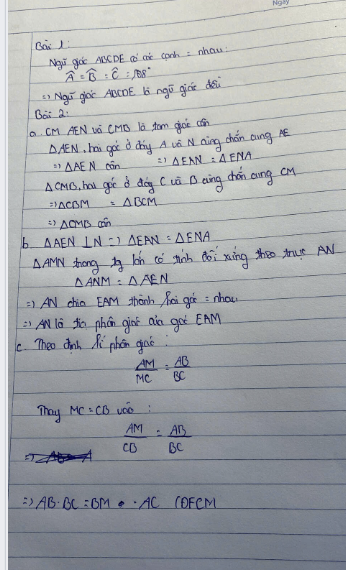 Ngày
Bài 1:
Ngũ giác ABCDE có các cạnh = nhau.
Â = B̂ = Ĉ = 108°
=> Ngũ giác ABCDE là ngũ giác đều
Bài 2:
a. CM AEN và CMB là tam giác cân
ΔAEN, hai góc ở đáy A và N cùng chắn cung AE
=> ΔAEN cân => ΔEAN = ΔENA
ΔCMB, hai góc ở đáy C và B cùng chắn cung CM
=> ΔCBM = ΔBCM
=> ΔCMB cân
b. ΔAEN ⊥ N => ΔEAN = ΔENA
ΔAMN trong có tính đối xứng theo trục AN
ΔANM = ΔAEN
=> AN chia EAM thành hai góc = nhau
=> AN là tia phân giác của góc EAM
c. Theo định lí phân giác:
AM/MC = AB/BC
Thay MC = CB vào:
AM/CB = AB/BC
=>
=> AB·BC = BM · AC (ĐFCM